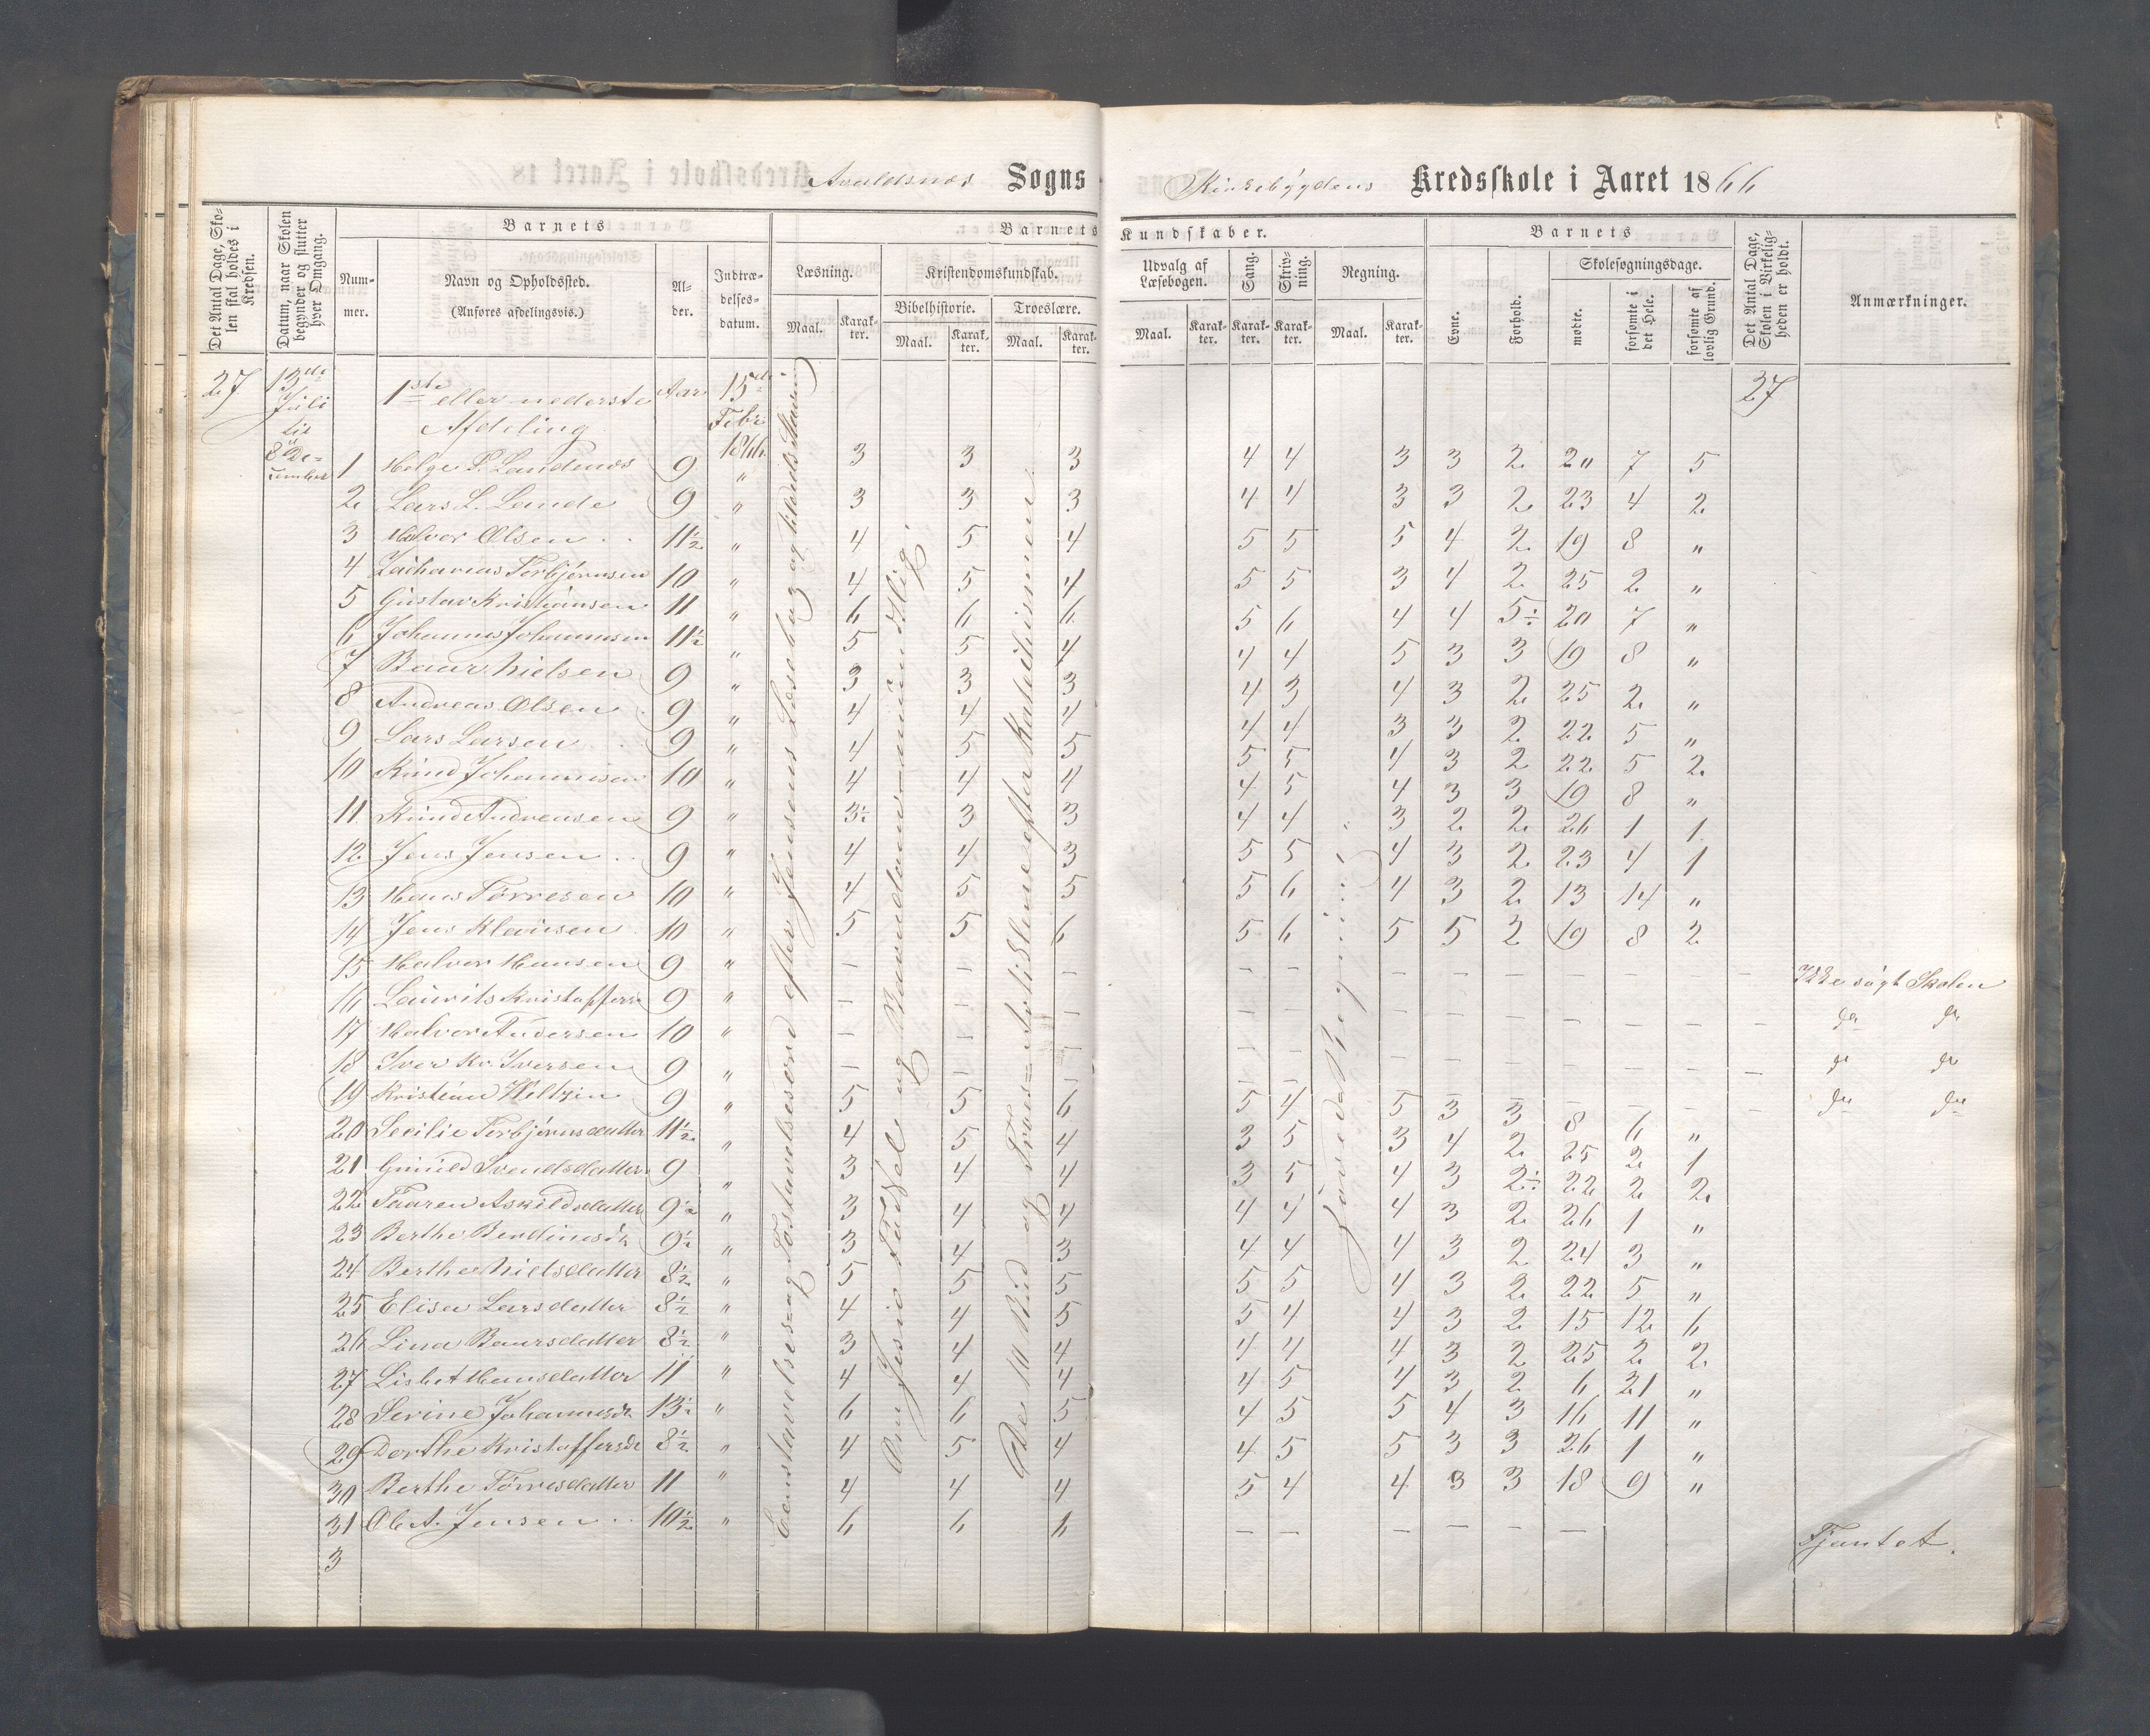 Avaldsnæs Sogns Kirkebygdens Kredsskole i Aaret 1866
Det Antal Dage, Skolen skal holdes i Kredsen.
Datum, naar Skolen begynder og slutter hver Omgang.
Barnets
Nummer.
Navn og Opholdssted.
(Anføres afdelingsvis.)
Alder.
Indtrædelsesdatum.
Barnets Kundskaber.
Læsning.
Maal.
Karakter.
Kristendomskundskab.
Bibelhistorie.
Maal.
Karakter.
Troeslære.
Maal.
Karakter.
Udvalg af Læsebogen.
Maal.
Karakter.
Sang.
Karakter.
Skrivning.
Karakter.
Regning.
Maal.
Karakter.
Barnets
Evne.
Forhold.
Skolesøgningsdage.
mødte.
forsømte i det Hele.
forsømte af lovlig Grund.
Det Antal Dage, Skolen i Virkeligheden er holdt.
Anmærkninger.
27 13de Juli til 8de December
1ste eller nederste Afdeling
Aar 15de Febr 1866
27
1 Helge L. Landenæs 9 " 3 3 3 4 4 3 3 2 20 7 5
2 Lars L. Lande 9 " 3 3 3 4 4 3 3 2 23 4 2
3 Halvor Olsen 11½ " 4 5 4 5 5 5 4 2 19 8 "
4 Zacharias Torbjørnsen 10 " 4 5 4 5 5 3 4 2 25 2 "
5 Gustav Kristiansen 11 " 6 6 6 5 6 4 4 5÷ 20 7 "
6 Johannes Johannesen 11½ " 5 5 4 4 4 5 3 3 19 8 "
7 Baar Nielsen 9 " 3 3 3 4 3 4 3 2 25 2 "
8 Andreas Olsen 9 " 4 4 4 4 4 3 3 2 22 5 "
9 Lars Larsen 9 " 4 5 5 5 5 4 3 2 22 5 2
10 Knud Johannesen 10 " 4 4 4 4 5 4 3 3 19 8 "
11 Knud Andreasen 9 " 3÷ 3 3 4 4 3 2 2 26 1 1
12 Jens Jensen 9 " 4 4 3 5 5 4 3 2 23 4 1
13 Hans Tørresen 10 " 4 5 5 5 6 4 3 2 13 14 "
14 Jens Klausen 10 " 5 5 6 5 6 5 5 2 19 8 2
15 Halvor Hansen 9 " – – – – – – – – – – – – Ikke søgt Skolen
16 Laurits Kristoffers 9 " – – – – – – – – – – – – do do
17 Halvor Andersen 10 " – – – – – – – – – – – – do do
18 Iver Kr. Iversen 9 " – – – – – – – – – – – – do do
19 Kristian Weltzin 9 " 5 5 6 5 4 5 3 3 8 6 "
20 Secilie Torbjørnsdatter 11½ " 4 5 4 3 5 3 4 2 25 2 1
21 Gunild Svendsdatter 9 " 3 4 4 3 5 4 3 2÷ 22 2 2
22 Taaren Askildsdatter 9½ " 3 4 4 4 4 4 3 2 26 1 "
23 Berthe Berdinesd 9½ " 3 4 3 4 4 4 3 2 24 3 "
24 Berthe Nielsdatter 8½ " 5 5 5 5 5 4 3 2 22 5 "
25 Elisa Larsdatter 8½ " 4 4 5 5 4 4 3 2 15 12 6
26 Lina Baarsdatter 8½ " 3 4 4 4 4 4 3 2 25 2 2
27 Lisbet Hansdatter 11 " 4 4 4 4 5 4 3 2 6 21 "
28 Serine Johannesdr 13½ " 6 6 5 4 5 5 4 3 16 11 "
29 Dorthe Kristoffersdr 8½ " 4 5 4 4 5 5 3 3 26 1 "
30 Berthe Tørresdatter 11 " 4 4 4 5 4 4 3 3 18 9 "
31 Ole A. Jensen 10½ " 6 6 6 – – – – – – Fjantet.
3
Eenstavelses- og Tostavelsesord efter Jensens Læsebog
Om Jesio Fødsel og Barndom mundtlig
De 10 Bud og Troes-Artiklene efter Katekismen
Hoved Regning